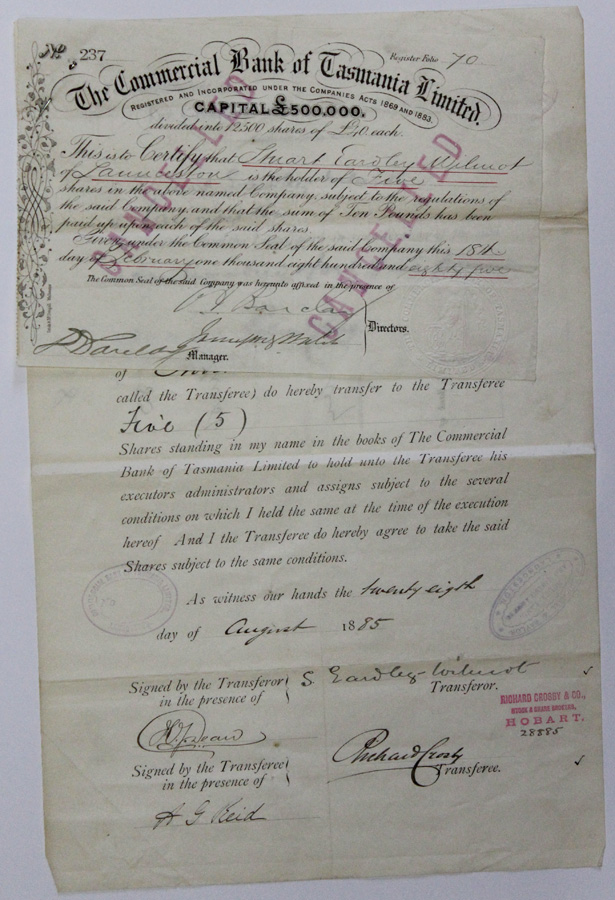 No 237
Register Folio 70
The Commercial Bank of Tasmania Limited.
REGISTERED AND INCORPORATED UNDER THE COMPANIES ACTS 1869 AND 1883.
CAPITAL £500,000.
divided into 12500 shares of £40 each.
This is to Certify that Stuart Eardley Wilmot
of Launceston is the holder of Five
shares in the above named Company, subject to the regulations of
the said Company, and that the sum of Ten Pounds has been
paid up upon each of the said shares
Given under the Common Seal of the said Company this 18th
day of February one thousand eight hundred and eighty five
The Common Seal of the said Company was hereunto affixed in the presence of
CANCELLED
CANCELLED
Barclay
Directors.
Manager.
of
called the Transferee) do hereby transfer to the Transferee
Five (5)
Shares standing in my name in the books of The Commercial
Bank of Tasmania Limited to hold unto the Transferee his
executors administrators and assigns subject to the several
conditions on which I held the same at the time of the execution
hereof And I the Transferee do hereby agree to take the said
Shares subject to the same conditions.
As witness our hands the twenty eigth
day of August 1885
Signed by the Transferor
in the presence of
S. Eardley-Wilmot
Transferor.
RICHARD CROSBY & CO.,
STOCK & SHARE BROKERS,
HOBART.
28885
Signed by the Transferee
in the presence of
Richard Crosby
Transferee.
A G Reid